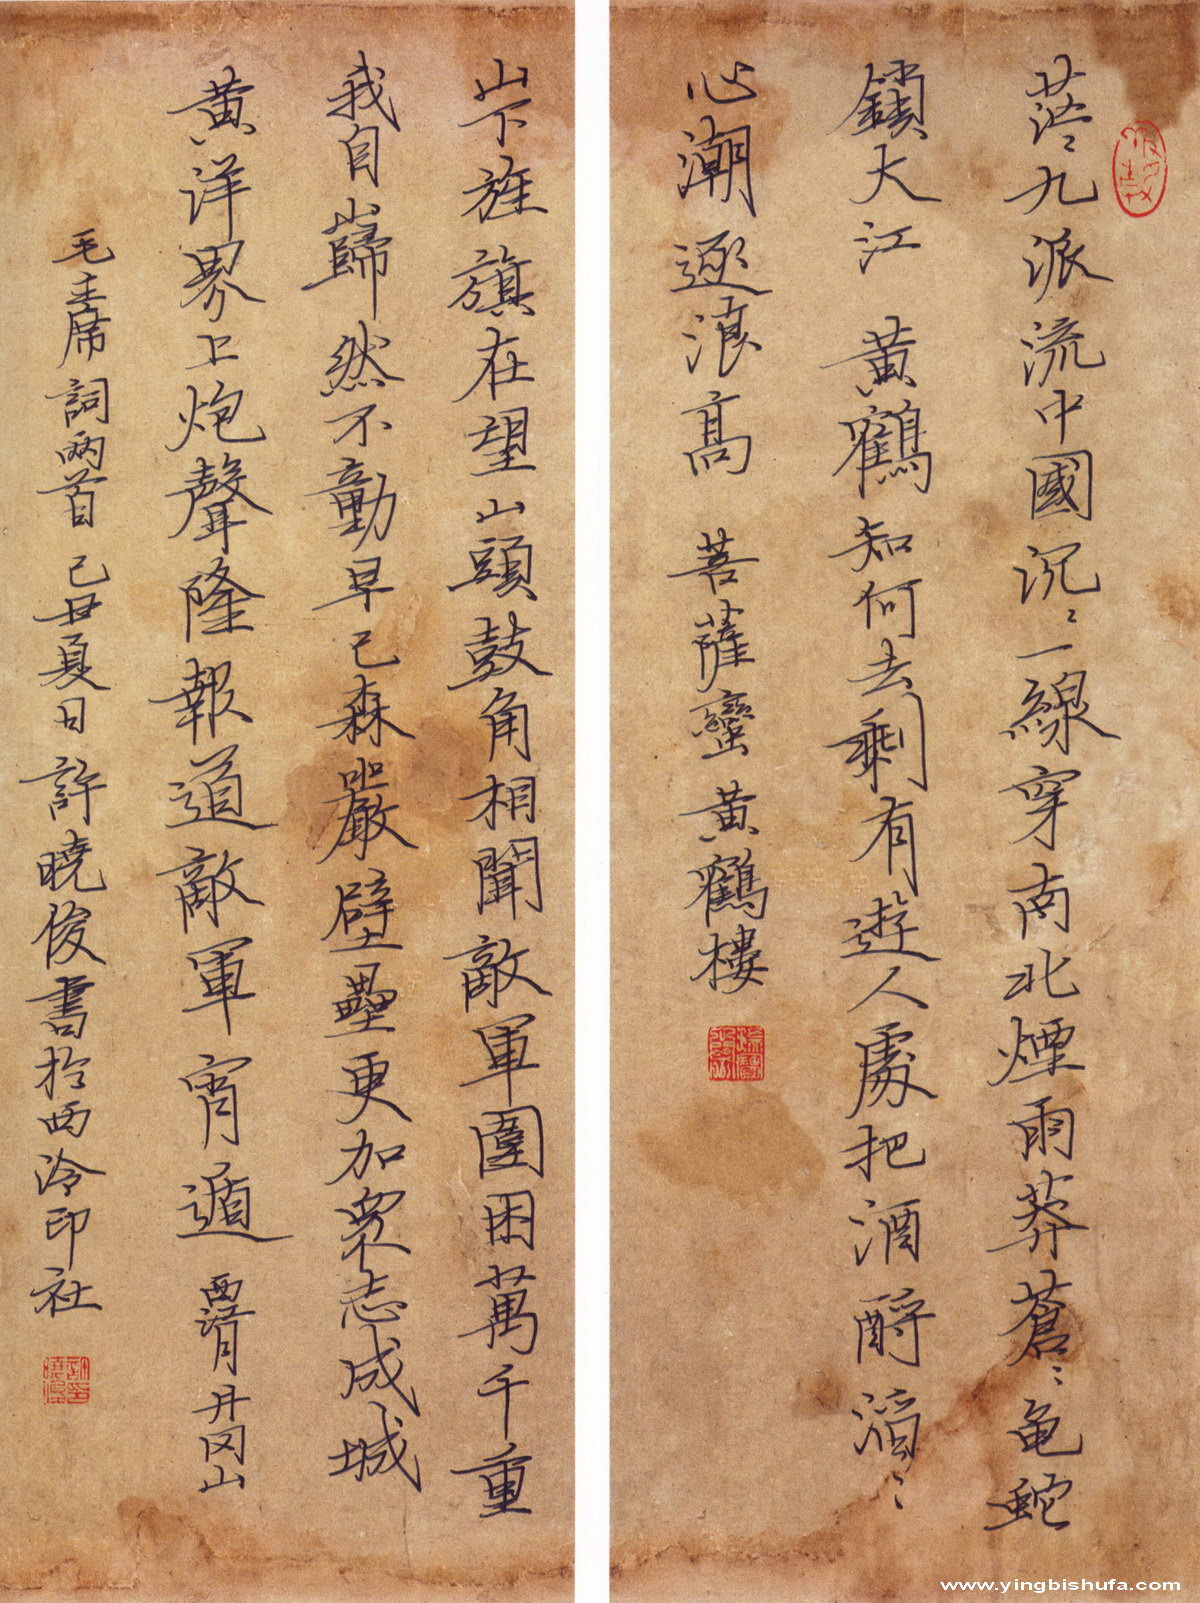 茫〻九派流中國沉〻一線穿南北煙雨莽蒼〻龜蛇
鎖大江 黃鶴知何去剩有遊人處把酒酹滔〻
心潮逐浪高 菩薩蠻 黃鶴樓
山下旌旗在望山頭鼓角相聞敵軍圍困萬千重
我自巋然不動早已森嚴壁壘更加衆志成城
黃洋界上炮聲隆報道敵軍宵遁 西江月 井岡山
毛主席詞兩首 己丑夏日 許曉俊書於西泠印社
www.yingbishufa.com